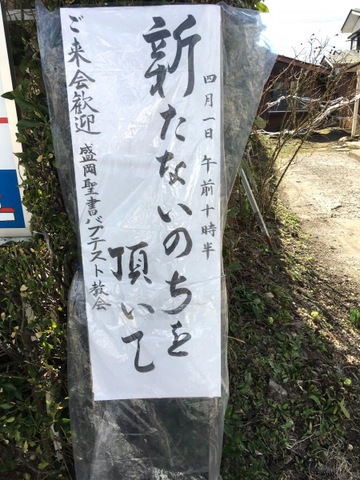 四月一日 午前十時半
新たないのちを
頂いて
ご来会歓迎 盛岡聖書バプテスト教会